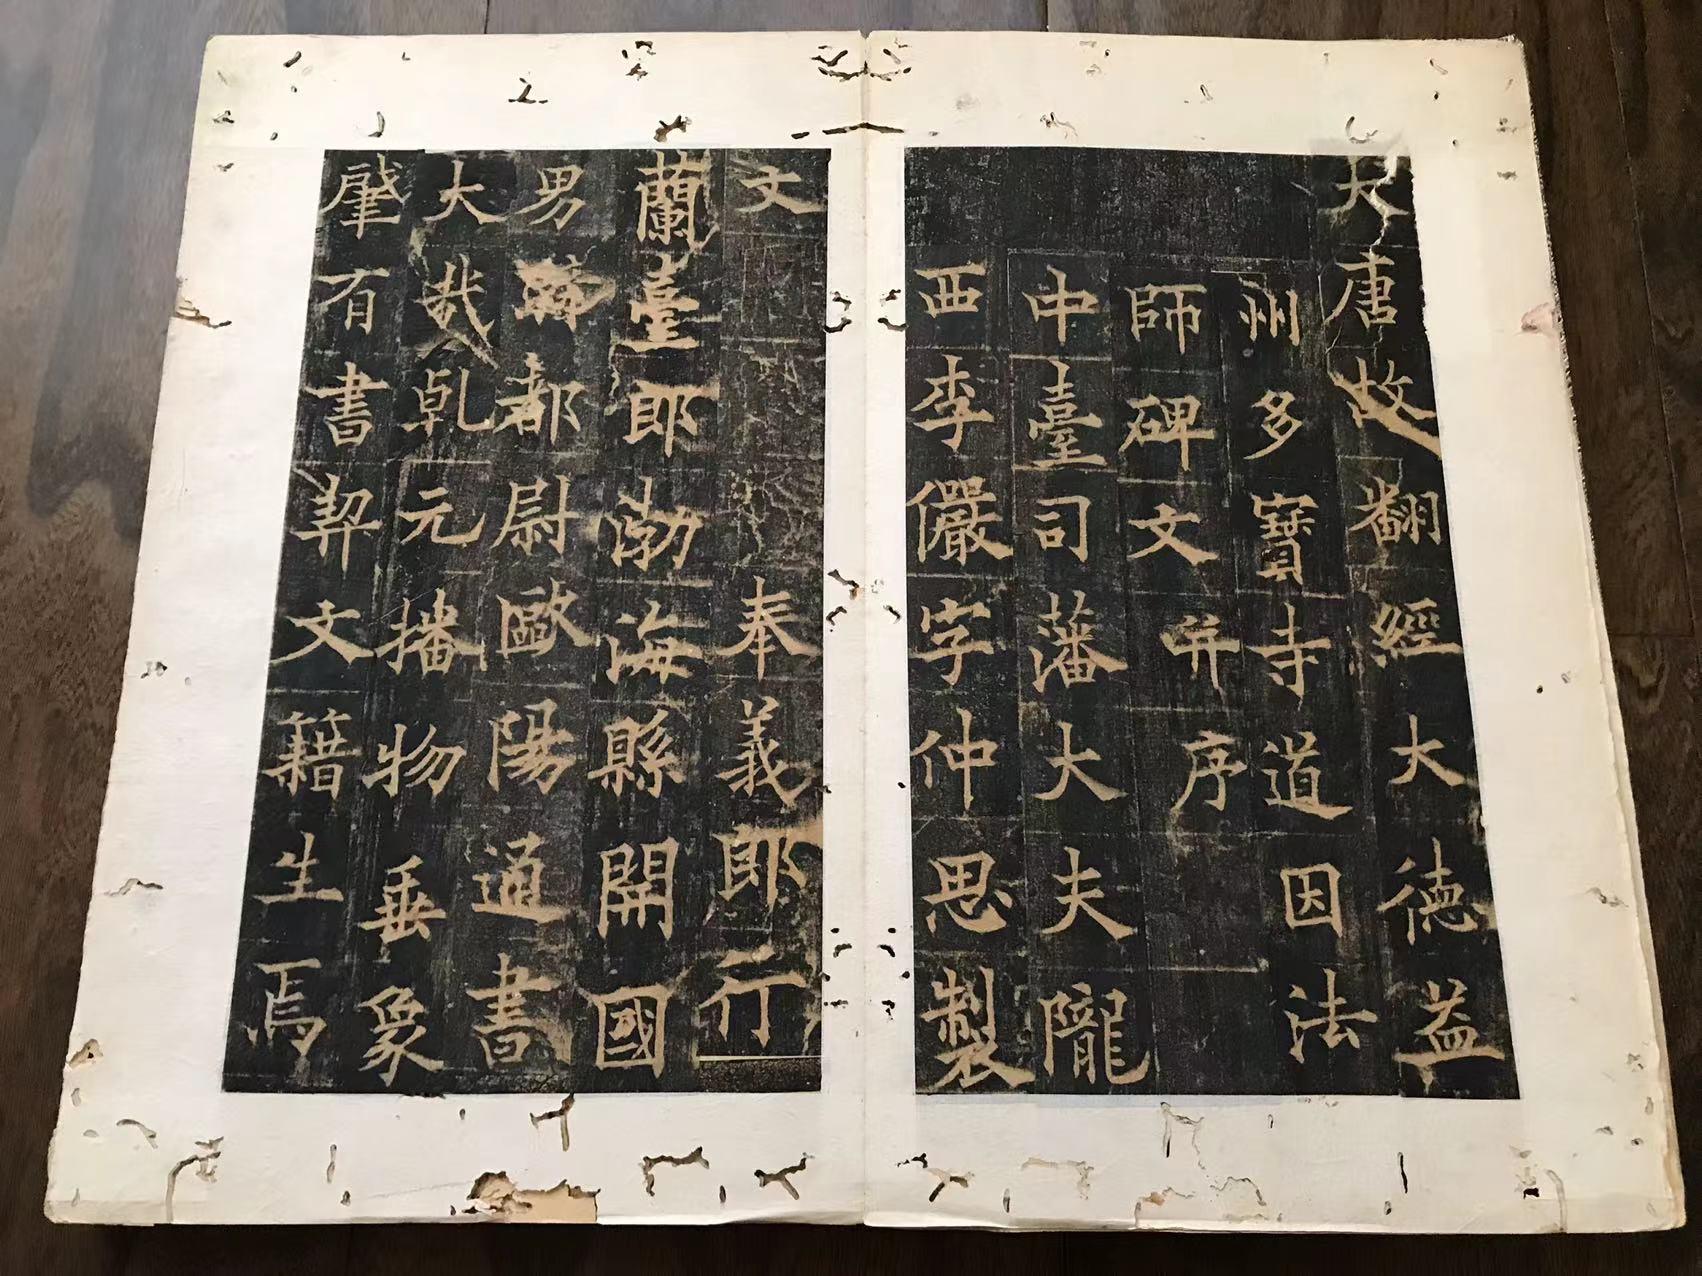 大唐故翻經大德益
州多寶寺道因法
師碑文并序
中臺司藩大夫隴
西李儼字仲思製
文
奉義郎行
蘭臺郎渤海縣開國
男騎都尉歐陽通書
大哉乹元播物垂象
肇有書契文籍生焉